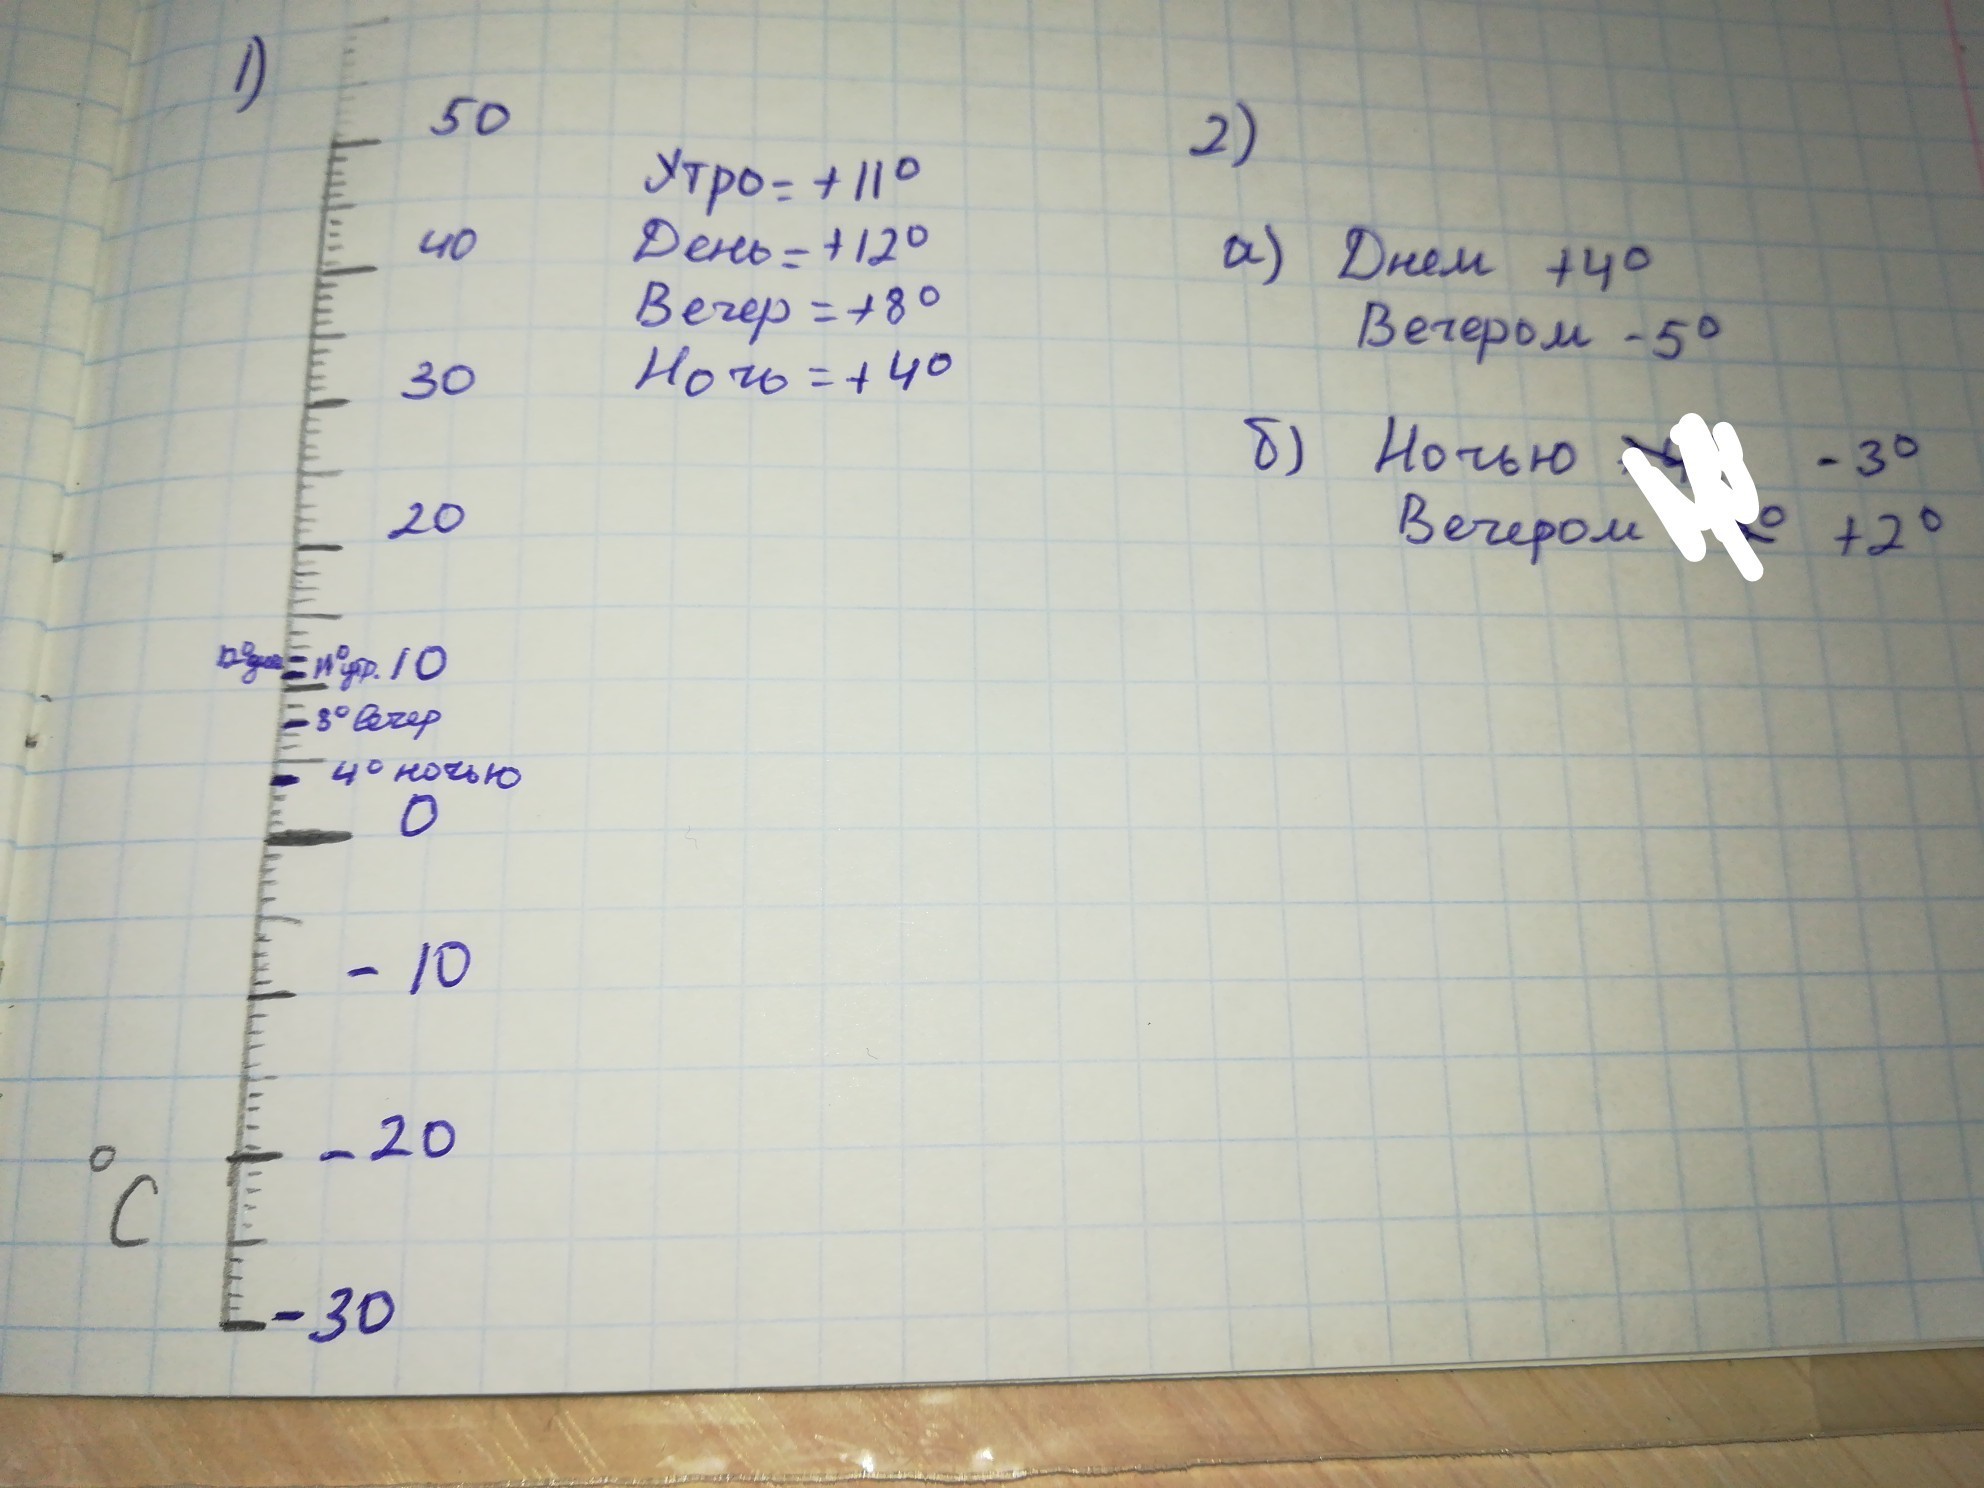 1)
50
40
30
20
12° днем 11° утр. 10
8° вечер
4° ночью
0
- 10
- 20
°C
- 30
Утро = +11°
День = +12°
Вечер = +8°
Ночь = +4°
2)
а) Днем +4°
Вечером -5°
б) Ночью -3°
Вечером +2°